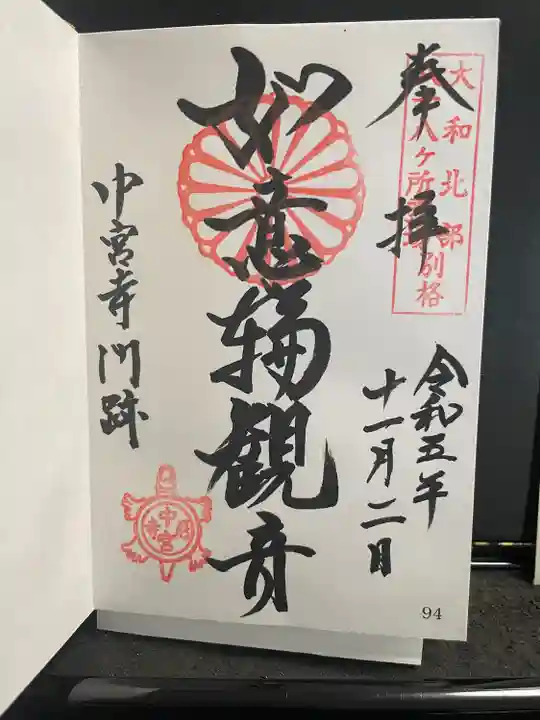 奉拝
大和北部
八ヶ所
別格
令和五年
十一月二日
如意輪観音
中宮寺門跡
中宮寺
94